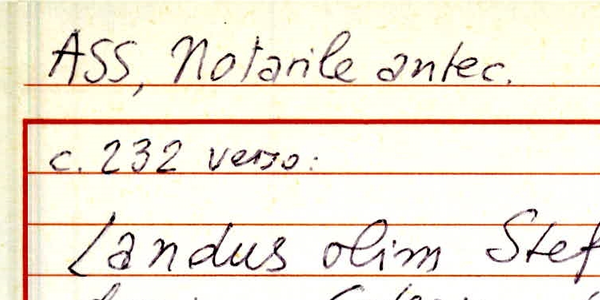 ASS, Notarile antec.
c. 232 verso:
Landus olim Stef